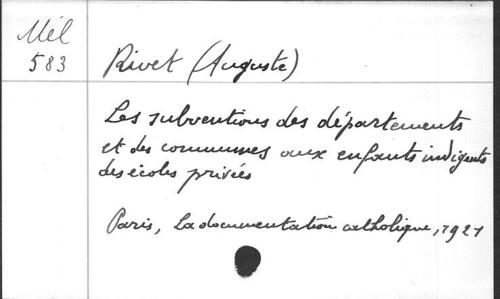 Mél
583
Rivet (Auguste)
Les subventions des départements
et des communes aux enfants indigents
des écoles privées
Paris, La documentation catholique, 1921